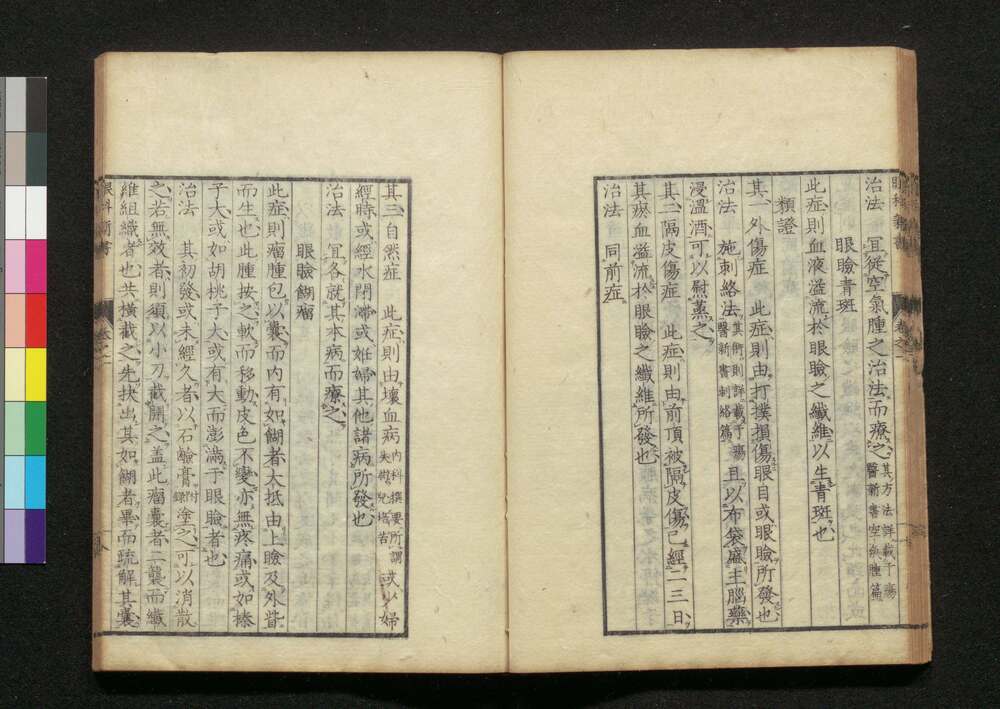 治法　宜從空氣腫之治法而療之其方法詳載于瘍醫新書空氣腫篇
眼瞼青斑
此症則血液溢流於眼瞼之纖維以生青斑也
類證
其一外傷症　此症則由打撲損傷眼目或眼瞼所發也
治法　施刺絡法其術則詳載于瘍醫新書刺絡篇且以布袋盛主腦藥
浸溫酒可以慰蒸之
其二隔皮傷症　此症則由前頂被隔皮傷已經二三日
其瘀血溢流於眼瞼之纖維所發也
治法　同前症
其三自然症　此症則由壞血病內科撰要所謂或以婦
經時或經水閉滯或妊婦其他諸病所發也
治法　宜各就其本病而療之
眼瞼餬瘤
此症則瘤腫包以囊而內有如餬者大抵由上瞼及外眥
而生也此腫按之軟而移動皮色不變亦無疼痛或如榛
子大或如胡桃子大或有大而澎滿于眼瞼者也
治法　其初發或未經久者以石鹼膏附錄塗之可以消散
之若無效者則須以小刀截開之蓋此瘤囊者二襲而纖
維組織者也共橫截之先抉出其如餬者畢而疏解其囊
眼科新書
卷之二